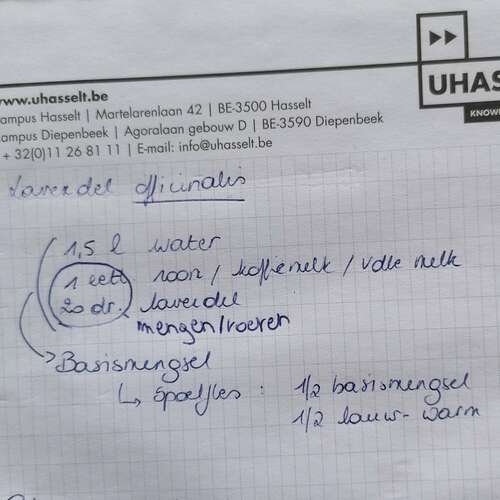 www.uhasselt.be
UHAS
ampus Hasselt | Martelarenlaan 42 | BE-3500 Hasselt
KNOW
ampus Diepenbeek | Agoralaan gebouw D | BE-3590 Diepenbeek
+ 32(0)11 26 81 11 | E-mail: info@uhasselt.be
Lavendel officinalis
1,5 l water
1 eetl room / koffiemelk / volle melk
20 dr. lavendel
mengen/roeren
Basismengsel
↳ spoelfles : 1/2 basismengsel
1/2 lauw-warm